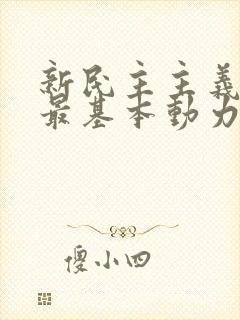 新民主主義
最基本動力
傻小四